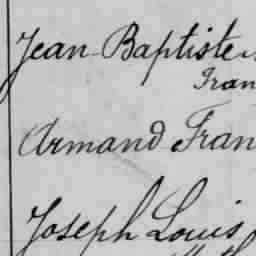 Jean Baptiste
Fran
Armand Fran
Joseph Louis